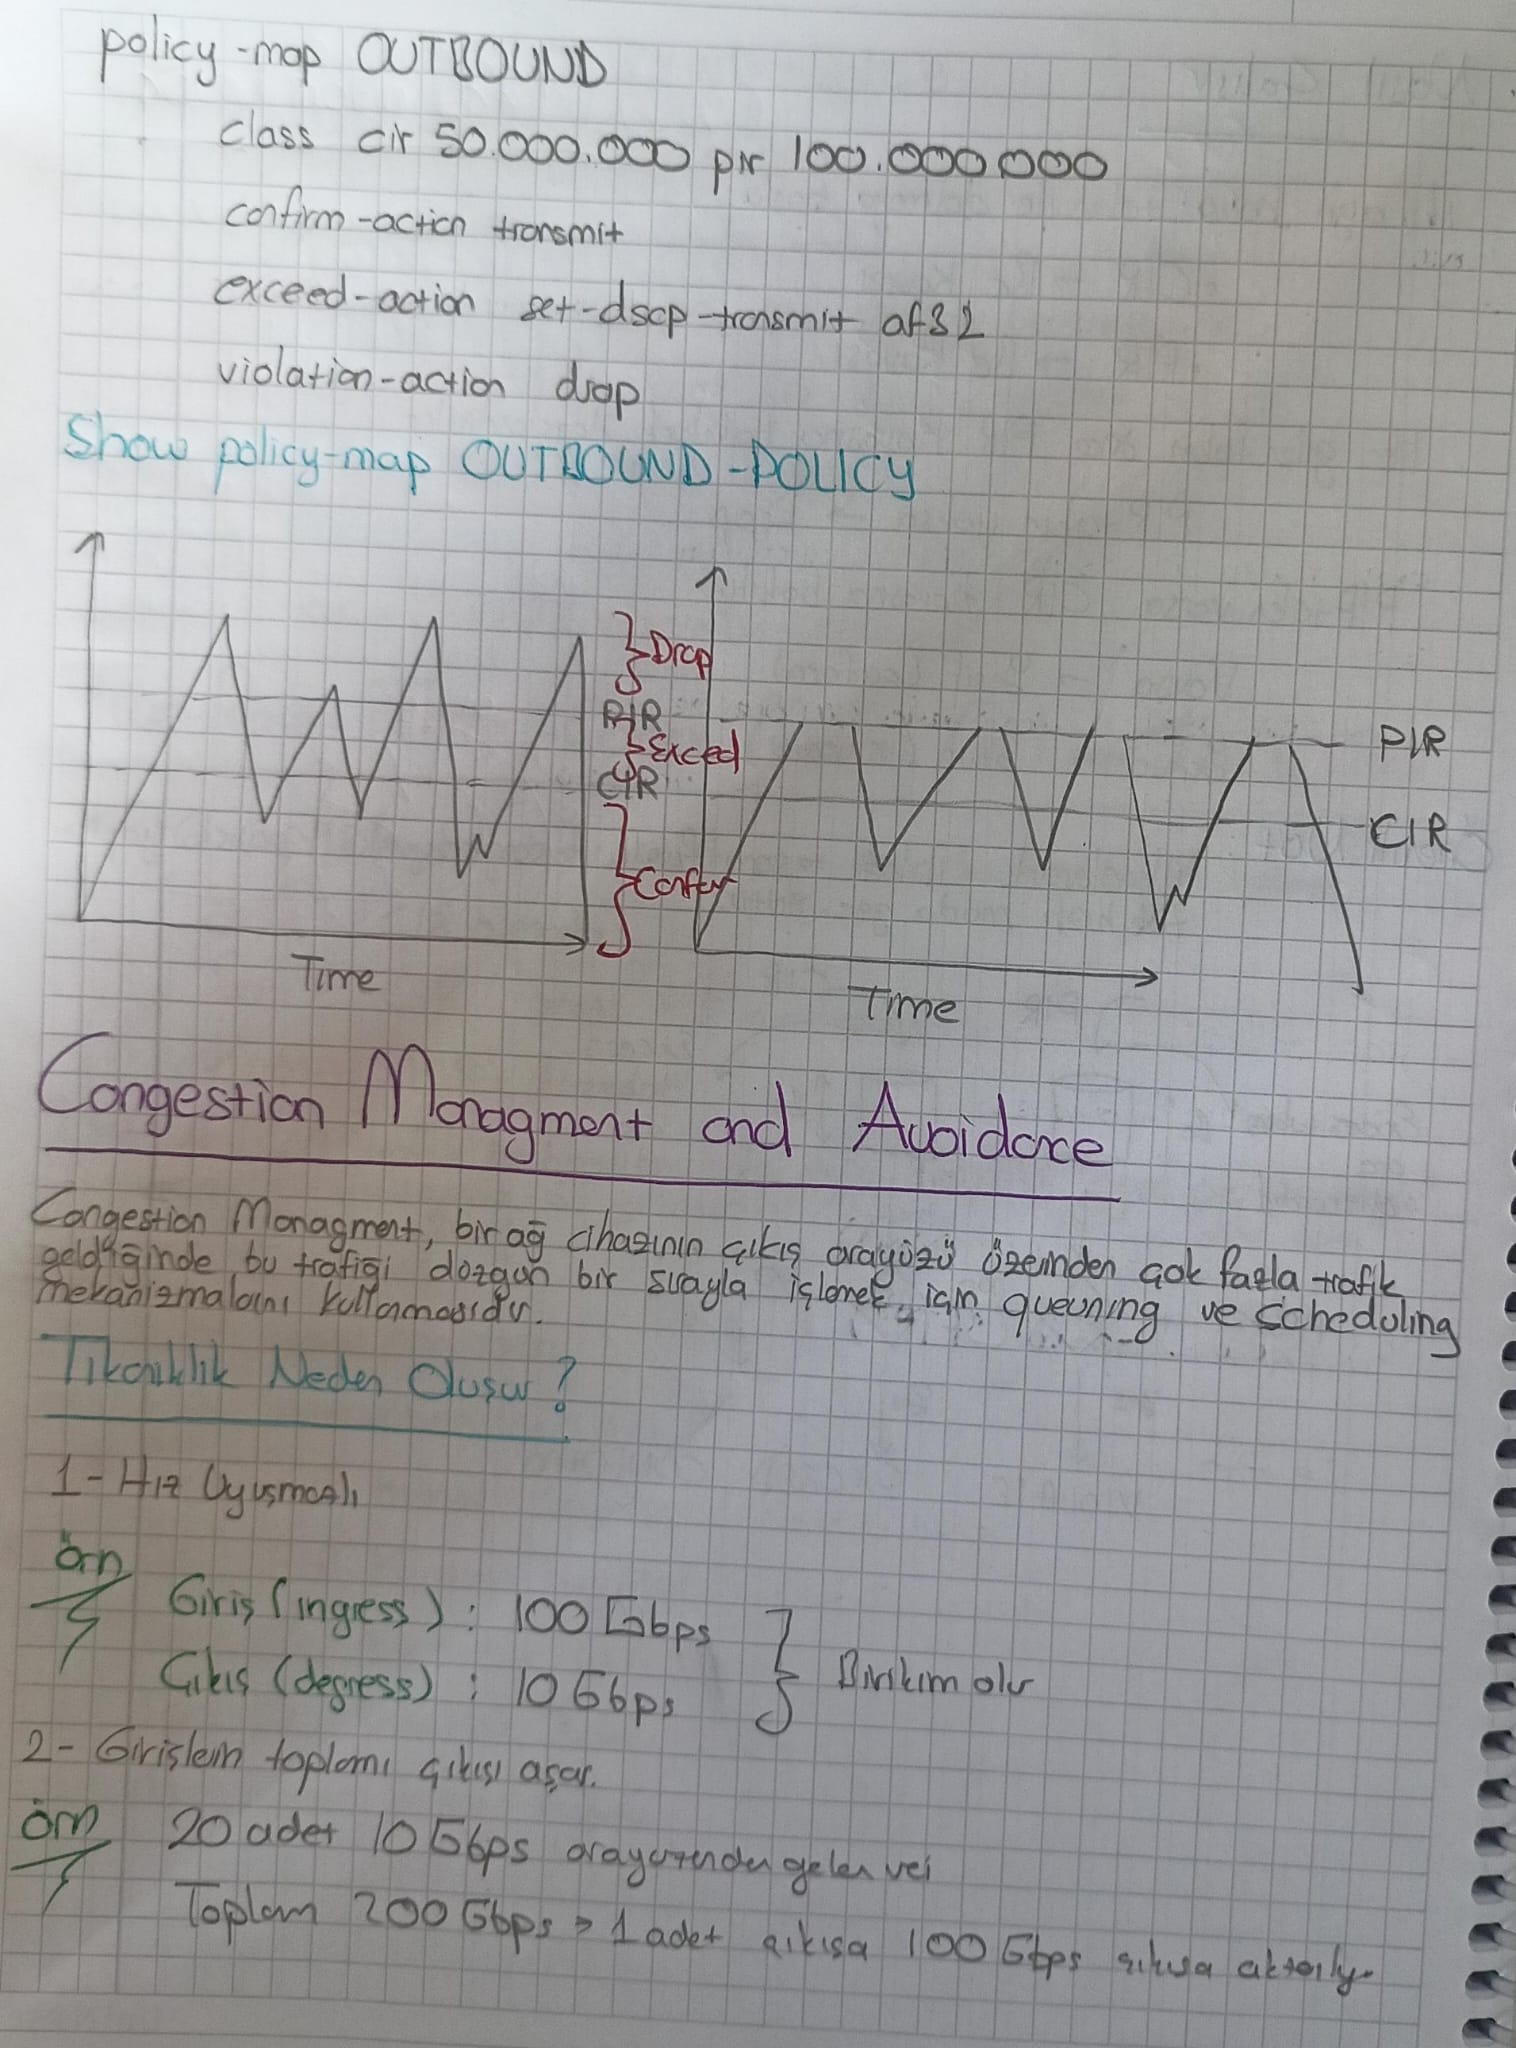 policy-map OUTBOUND
class cir 50.000.000 pir 100.000000
confirm-action transmit
exceed-action set-dscp-transmit af32
violation-action drop
Show policy-map OUTBOUND-POLICY
Drop
PIR
Exced
CIR
PIR
CIR
Time
Time
Congestion Managment and Avoidance
Congestion Managment, bir ağ cihazının çıkış arayüzü üzerinden çok fazla trafik
geldiğinde bu trafiği düzgün bir sırayla işlemek için queuning ve scheduling
mekanizmalarını kullanmasıdır.
Tıkanıklık Neden Oluşur?
1- Hız Uyuşmazlı
örn
Giriş (ingress) : 100 Gbps
Çıkış (degress) : 10 Gbps
Birikim olur
2- Girişlerin toplamı çıkışı aşar.
örn
20 adet 10 Gbps arayüzünden gelen veri
Toplam 200 Gbps > 1 adet çıkışa 100 Gbps çıkışa